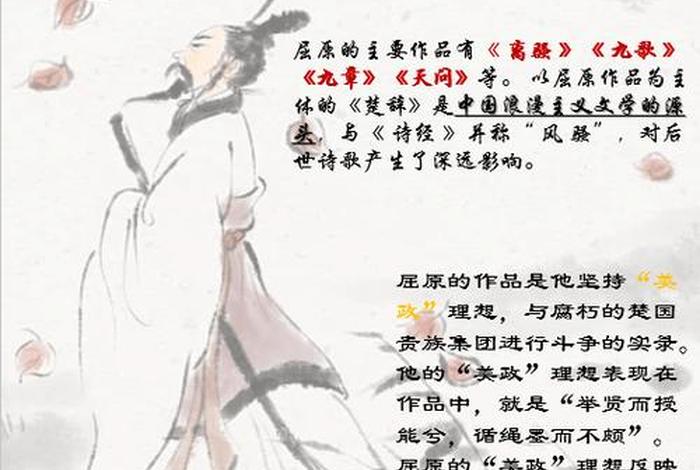 屈原的主要作品有《离骚》《九歌》
《九章》《天问》等。以屈原作品为主
体的《楚辞》是中国浪漫主义文学的源
头，与《诗经》并称“风骚”，对后
世诗歌产生了深远影响。
屈原的作品是他坚持“美
政”理想，与腐朽的楚国
贵族集团进行斗争的实录。
他的“美政”理想表现在
作品中，就是“举贤而授
能兮，循绳墨而不颇”。
屈原的“美政”理想反映